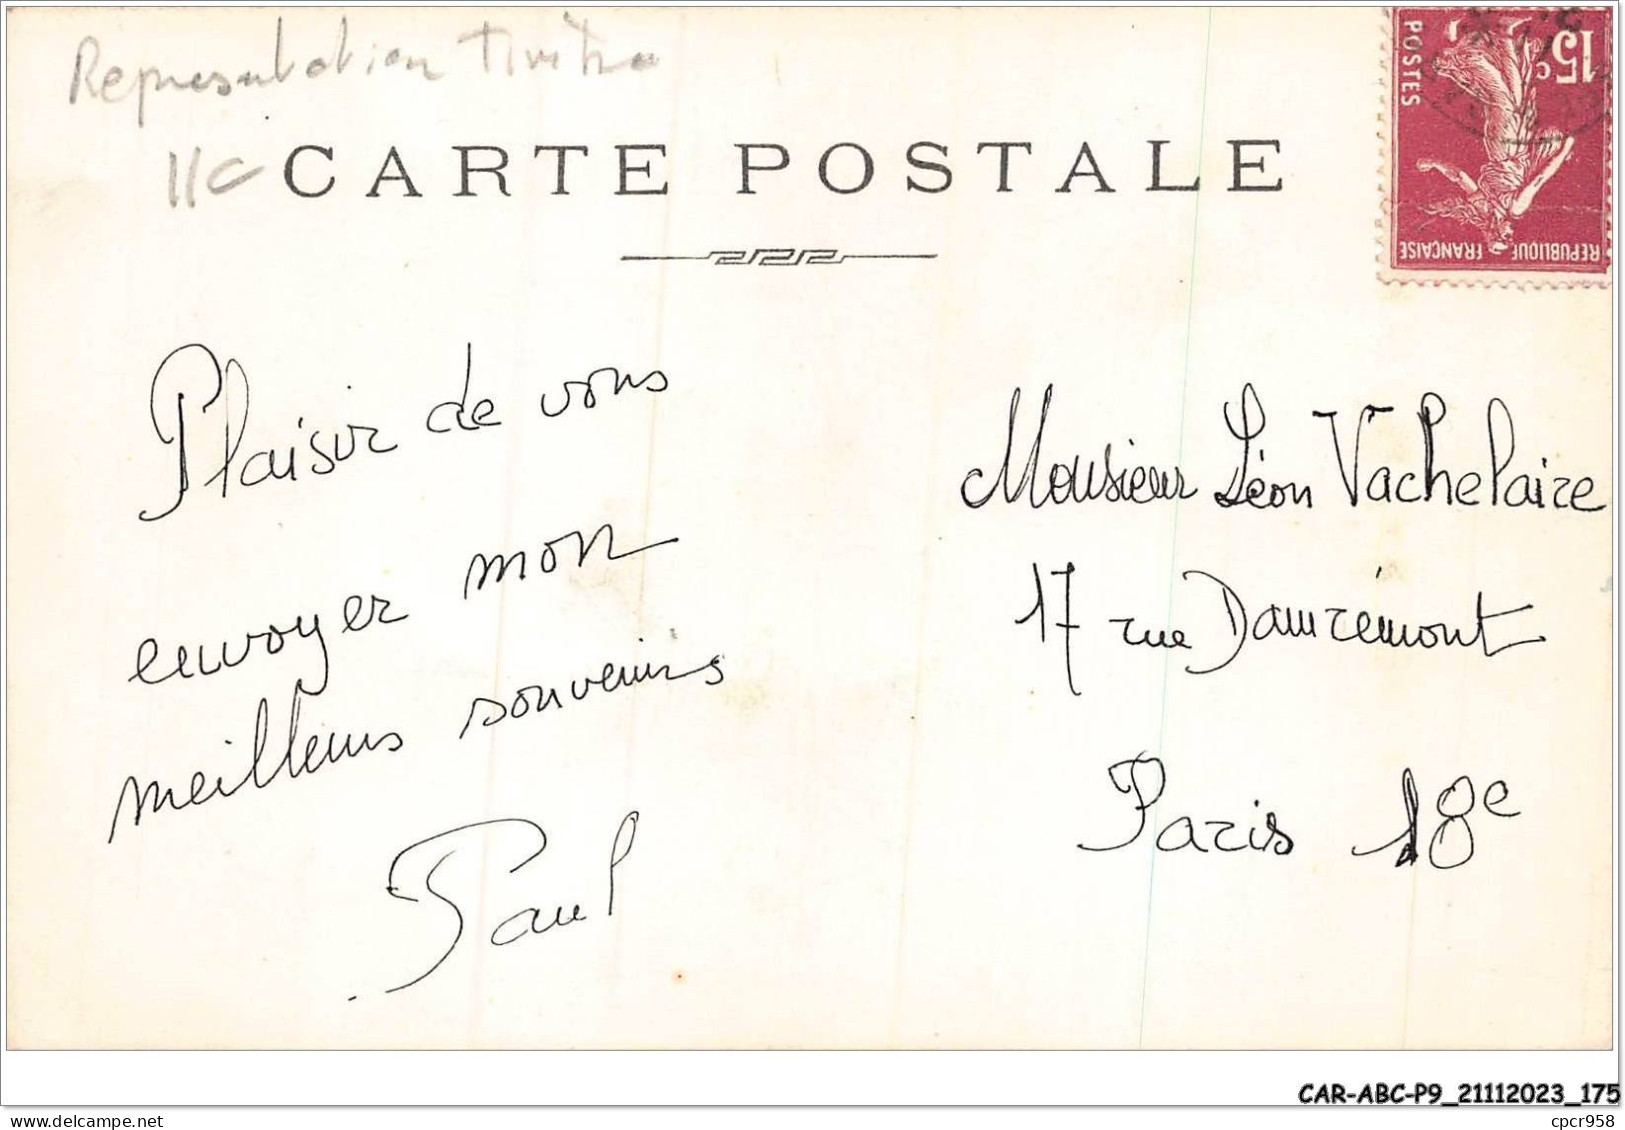 Representation
11c
CARTE POSTALE
15c
POSTES
REPUBLIQUE FRANÇAISE
Plaisir de vous
envoyer mon
meilleurs souvenirs
Paul
Monsieur Léon Vachelaire
17 rue Damrémont
Paris 18e
CAR-ABC-P9_21112023_175
cpcr958